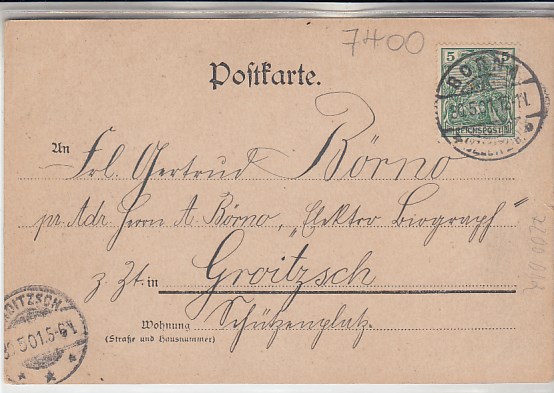 7400
5 5
BORNA
30.5.01.
REICHSPOST
Postkarte.
An Frl. Gertrud Börno
pr. Adr. Herrn A. Börno, „Elektro Biograph"
z. Zt. in Groitzsch
Wohnung Schützenplatz.
(Straße und Hausnummer)
GROITZSCH
30.5.01.5-6N